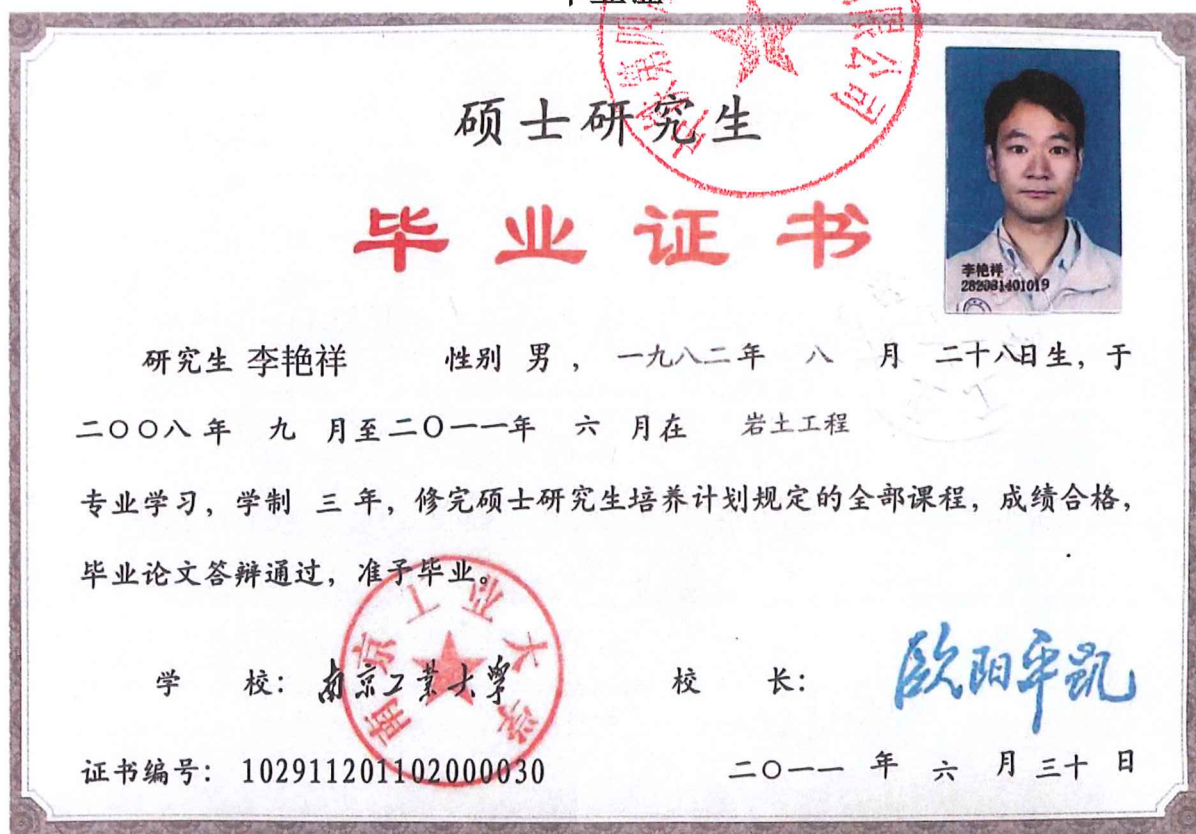 毕业证
硕士研究生
毕业证书
李艳祥
282081401019
研究生 李艳祥 性别 男 , 一九八二年 八 月 二十八日生, 于
二〇〇八 年 九 月至二〇一一年 六 月在 岩土工程
专业学习, 学制 三 年, 修完硕士研究生培养计划规定的全部课程, 成绩合格,
毕业论文答辩通过, 准予毕业。
南京工业大学
学 校: 南京工业大学 校 长: 欧阳平凯
证书编号: 102911201102000030 二〇一一 年 六 月 三十 日